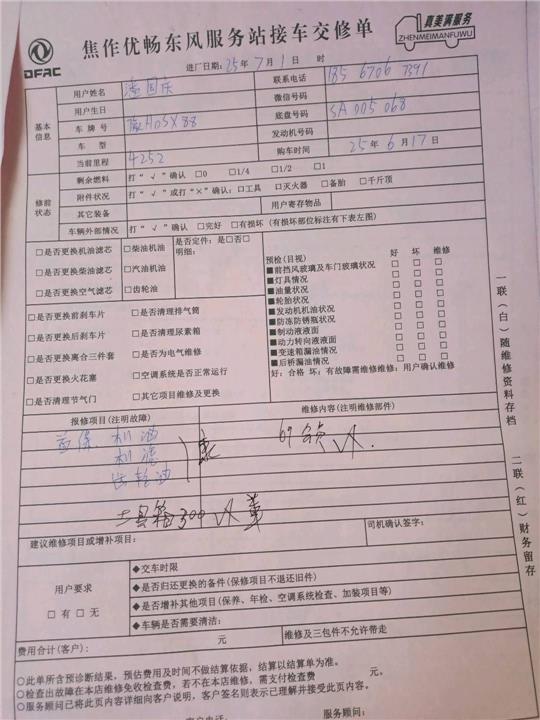 DFAC
焦作优畅东风服务站接车交修单
真美满服务
ZHENMEIMANFUWU
进厂日期: 25年 7月 1日 时
基本信息
用户姓名 潘国庆 联系电话
用户生日 微信号码
车牌号 底盘号码 SA005068
车型 发动机号码
当前里程 4252 购车时间 25年6月17日
修前状态
剩余燃料 打“√”确认 □0 □1/4 □1/2 □1
附件状况 打“√”或打“×”确认: □工具 □灭火器 □备胎 □千斤顶
其它装备 用户寄存物品
车辆外部情况 打“√”确认 □完好 □有损坏 (有损坏部位标注有下表左图)
□是否更换机油滤芯 □柴油机油 是否定件: 是□否□
□是否更换柴油滤芯 □汽油机油 明细:
□是否更换空气滤芯 □齿轮油
□是否更换前刹车片 □是否清理排气筒
□是否更换后刹车片 □是否清理尿素箱
□是否更换离合三件套 □是否为电气维修
□是否更换火花塞 □空调系统是否正常运行
□是否清理节气门 □其它项目维修及更换
预检(目视) 好 坏 维修
■前挡风玻璃及车门玻璃状况 □ □ □
■灯具情况 □ □ □
■油量状况 □ □ □
■轮胎状况 □ □ □
■发动机机油状况 □ □ □
■防冻防锈瓶状况 □ □ □
■制动液液面 □ □ □
■动力转向液液面 □ □ □
■变速箱漏油情况 □ □ □
■后桥漏油情况 □ □ □
好: 合格 坏: 有故障需维修维修: 用户确认维修
报修项目(注明故障) 维修内容(注明维修部件)
首保 机油
机滤
齿轮油
工具箱300
建议维修项目或增补项目: 司机确认签字:
用户要求
□有 □无
◆交车时限
◆是否归还更换的备件(保修项目不退还旧件)
◆是否增补其他项目(保养、年检、空调系统检查、加装项目等)
◆车辆是否需要清洁:
费用合计(客户): 元 维修及三包件不允许带走
○此单所含预诊断结果，预估费用及时间不做结算依据，结算以结算单为准。
○检查出故障在本店维修免收检查费，若不在本店维修，需支付检查费 元。
○服务顾问已将此页内容详细向客户说明，客户签名则表示已理解并接受此页内容。
客户电话: 服务顾问:
一联(白)随维修资料存档
二联(红)财务留存